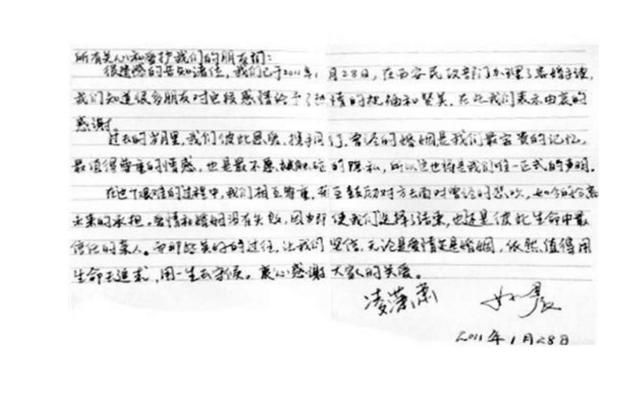 所有关心和爱护我们的朋友们：
很遗憾的告知诸位，我们已于2011年1月28日，在西安民政部门办理了离婚手续，
我们知道很多朋友对这段感情给予了热情的祝福和赞美，在此我们表示由衷的
感谢
过去的岁月里，我们彼此恩爱，携手同行，曾经的婚姻是我们最宝贵的记忆，
最值得尊重的情感，也是最不愿被触碰的隐私，所以这也将是我们唯一正式的声明。
在这个艰难的过程中，我们相互尊重，互鼓励对方去面对曾经的悲欢，如今的
未来的承担。爱情和婚姻没有失败，因为即使我们选择了结束，也还是彼此生命中最
信任的亲人。而那些美好的过往，让我们坚信，无论是爱情还是婚姻，依然值得用
生命去追求，用一生去守候。衷心感谢大家的关爱。
凌潇肃 姚晨
2011年1月28日